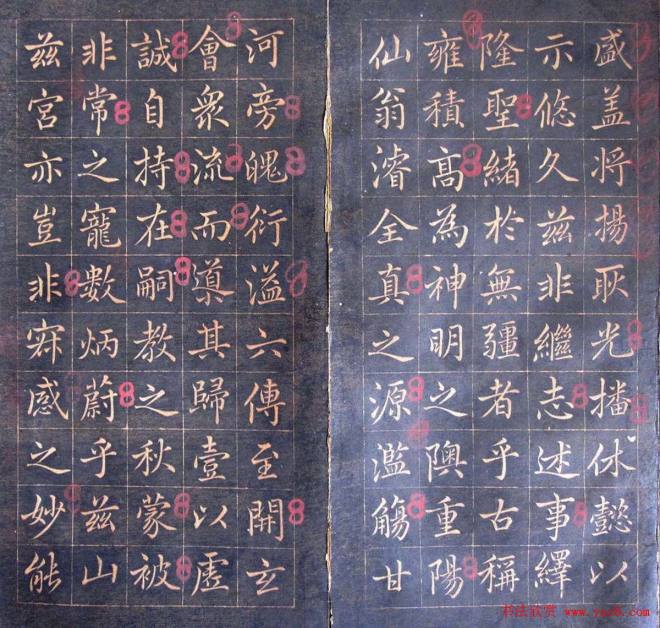 盛盖将揚耿光播休懿以
示悠久兹非繼志述事繹
隆聖緒於無疆者乎古稱
雍積高為神明之隩重陽
仙翁濬全真之源濫觴甘
河旁魄衍溢六傳至開玄
會衆流而導其歸壹以虛
誠自持在嗣教之秋蒙被
非常之寵數炳蔚乎兹山
兹宮亦豈非冥感之妙能
书法欣赏 www.yac8.com